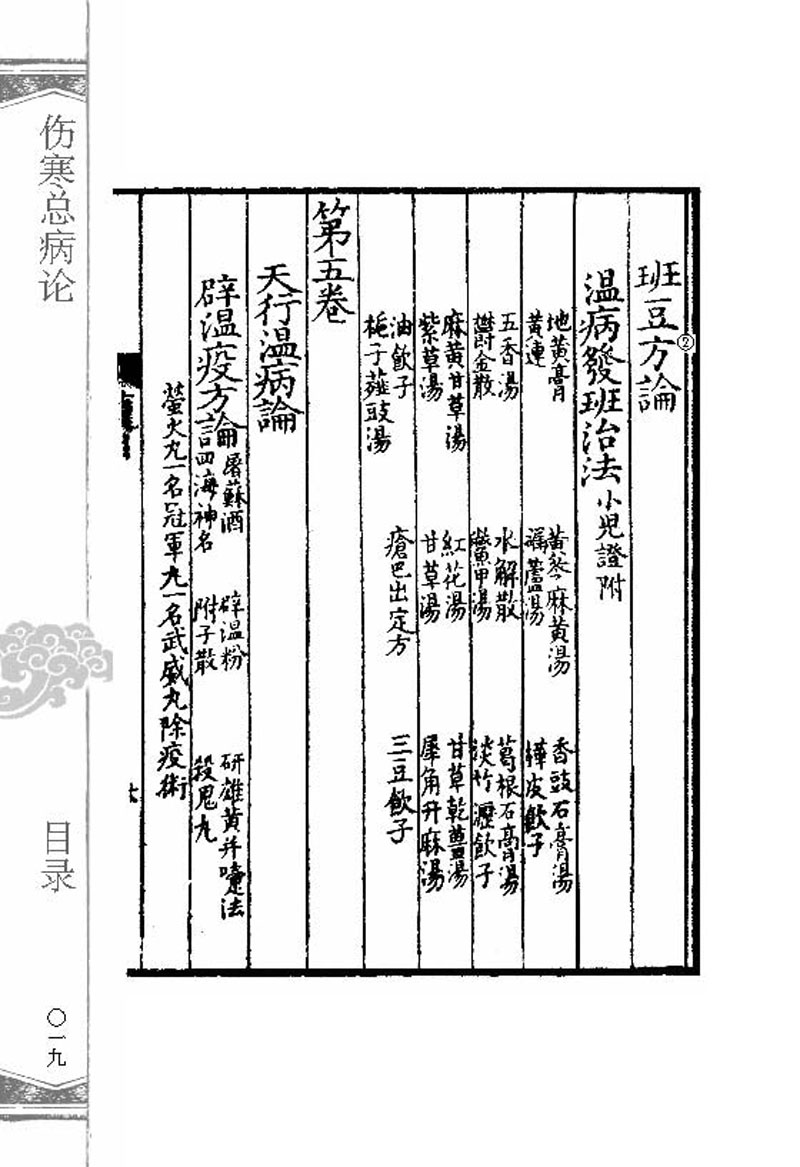 斑豆方論
②
温病發斑治法小兒證附
地黄膏 黄芩麻黄湯 香豉石膏湯
黄連 漏蘆湯 樺皮飲子
五香湯 水解散 葛根石膏湯
鬱金散 鱉甲湯 淡竹瀝飲子
麻黄甘草湯 紅花湯 甘草乾薑湯
紫草湯 甘草湯 犀角升麻湯
油飲子 瘡巴出定方 三豆飲子
梔子薤豉湯
第五卷
天行温病論
辟温疫方論
屠蘇酒 辟温粉 研雄黄并嚏法
言四海神名 附子散 殺鬼丸
螢火丸一名冠軍丸一名武威丸除疫術
六
伤寒总病论
目录
〇一九